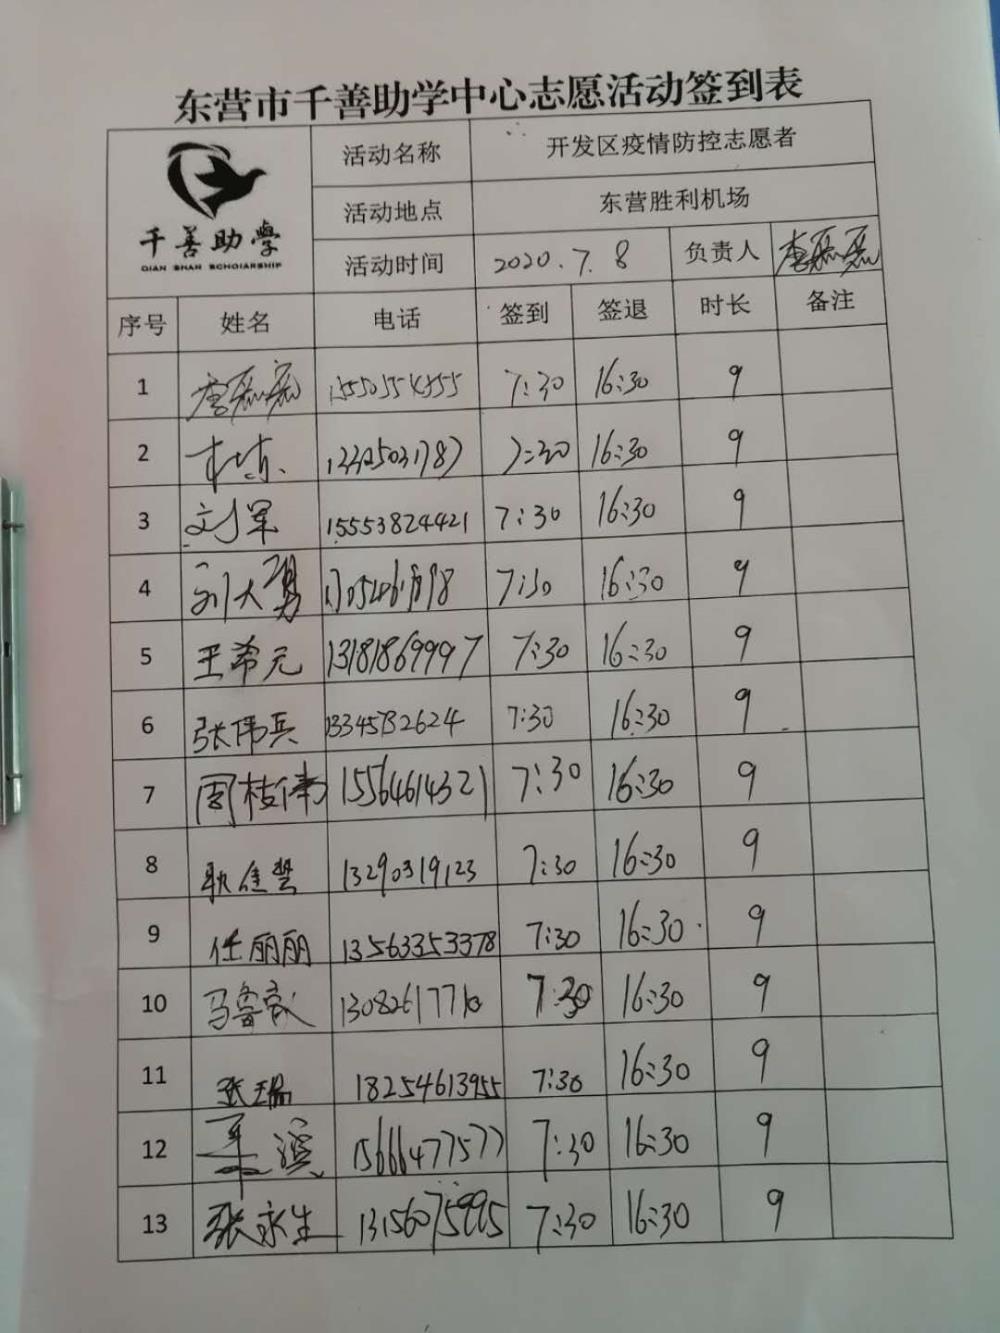 东营市千善助学中心志愿活动签到表
千善助学
QIAN SHAN SCHOIARSHIP
活动名称 开发区疫情防控志愿者
活动地点 东营胜利机场
活动时间 2020.7.8 负责人 李磊磊
序号 姓名 电话 签到 签退 时长 备注
1 李磊磊 7:30 16:30 9
2 7:30 16:30 9
3 刘军 15553824421 7:30 16:30 9
4 刘大勇 7:30 16:30 9
5 王希元 13181869997 7:30 16:30 9
6 张伟兵 13345732624 7:30 16:30 9
7 周枝伟 15564614321 7:30 16:30 9
8 耿佳慧 13290319123 7:30 16:30 9
9 任丽丽 13563353378 7:30 16:30 9
10 7:30 16:30 9
11 张瑞 18254613955 7:30 16:30 9
12 15666477577 7:30 16:30 9
13 张永生 13156075995 7:30 16:30 9